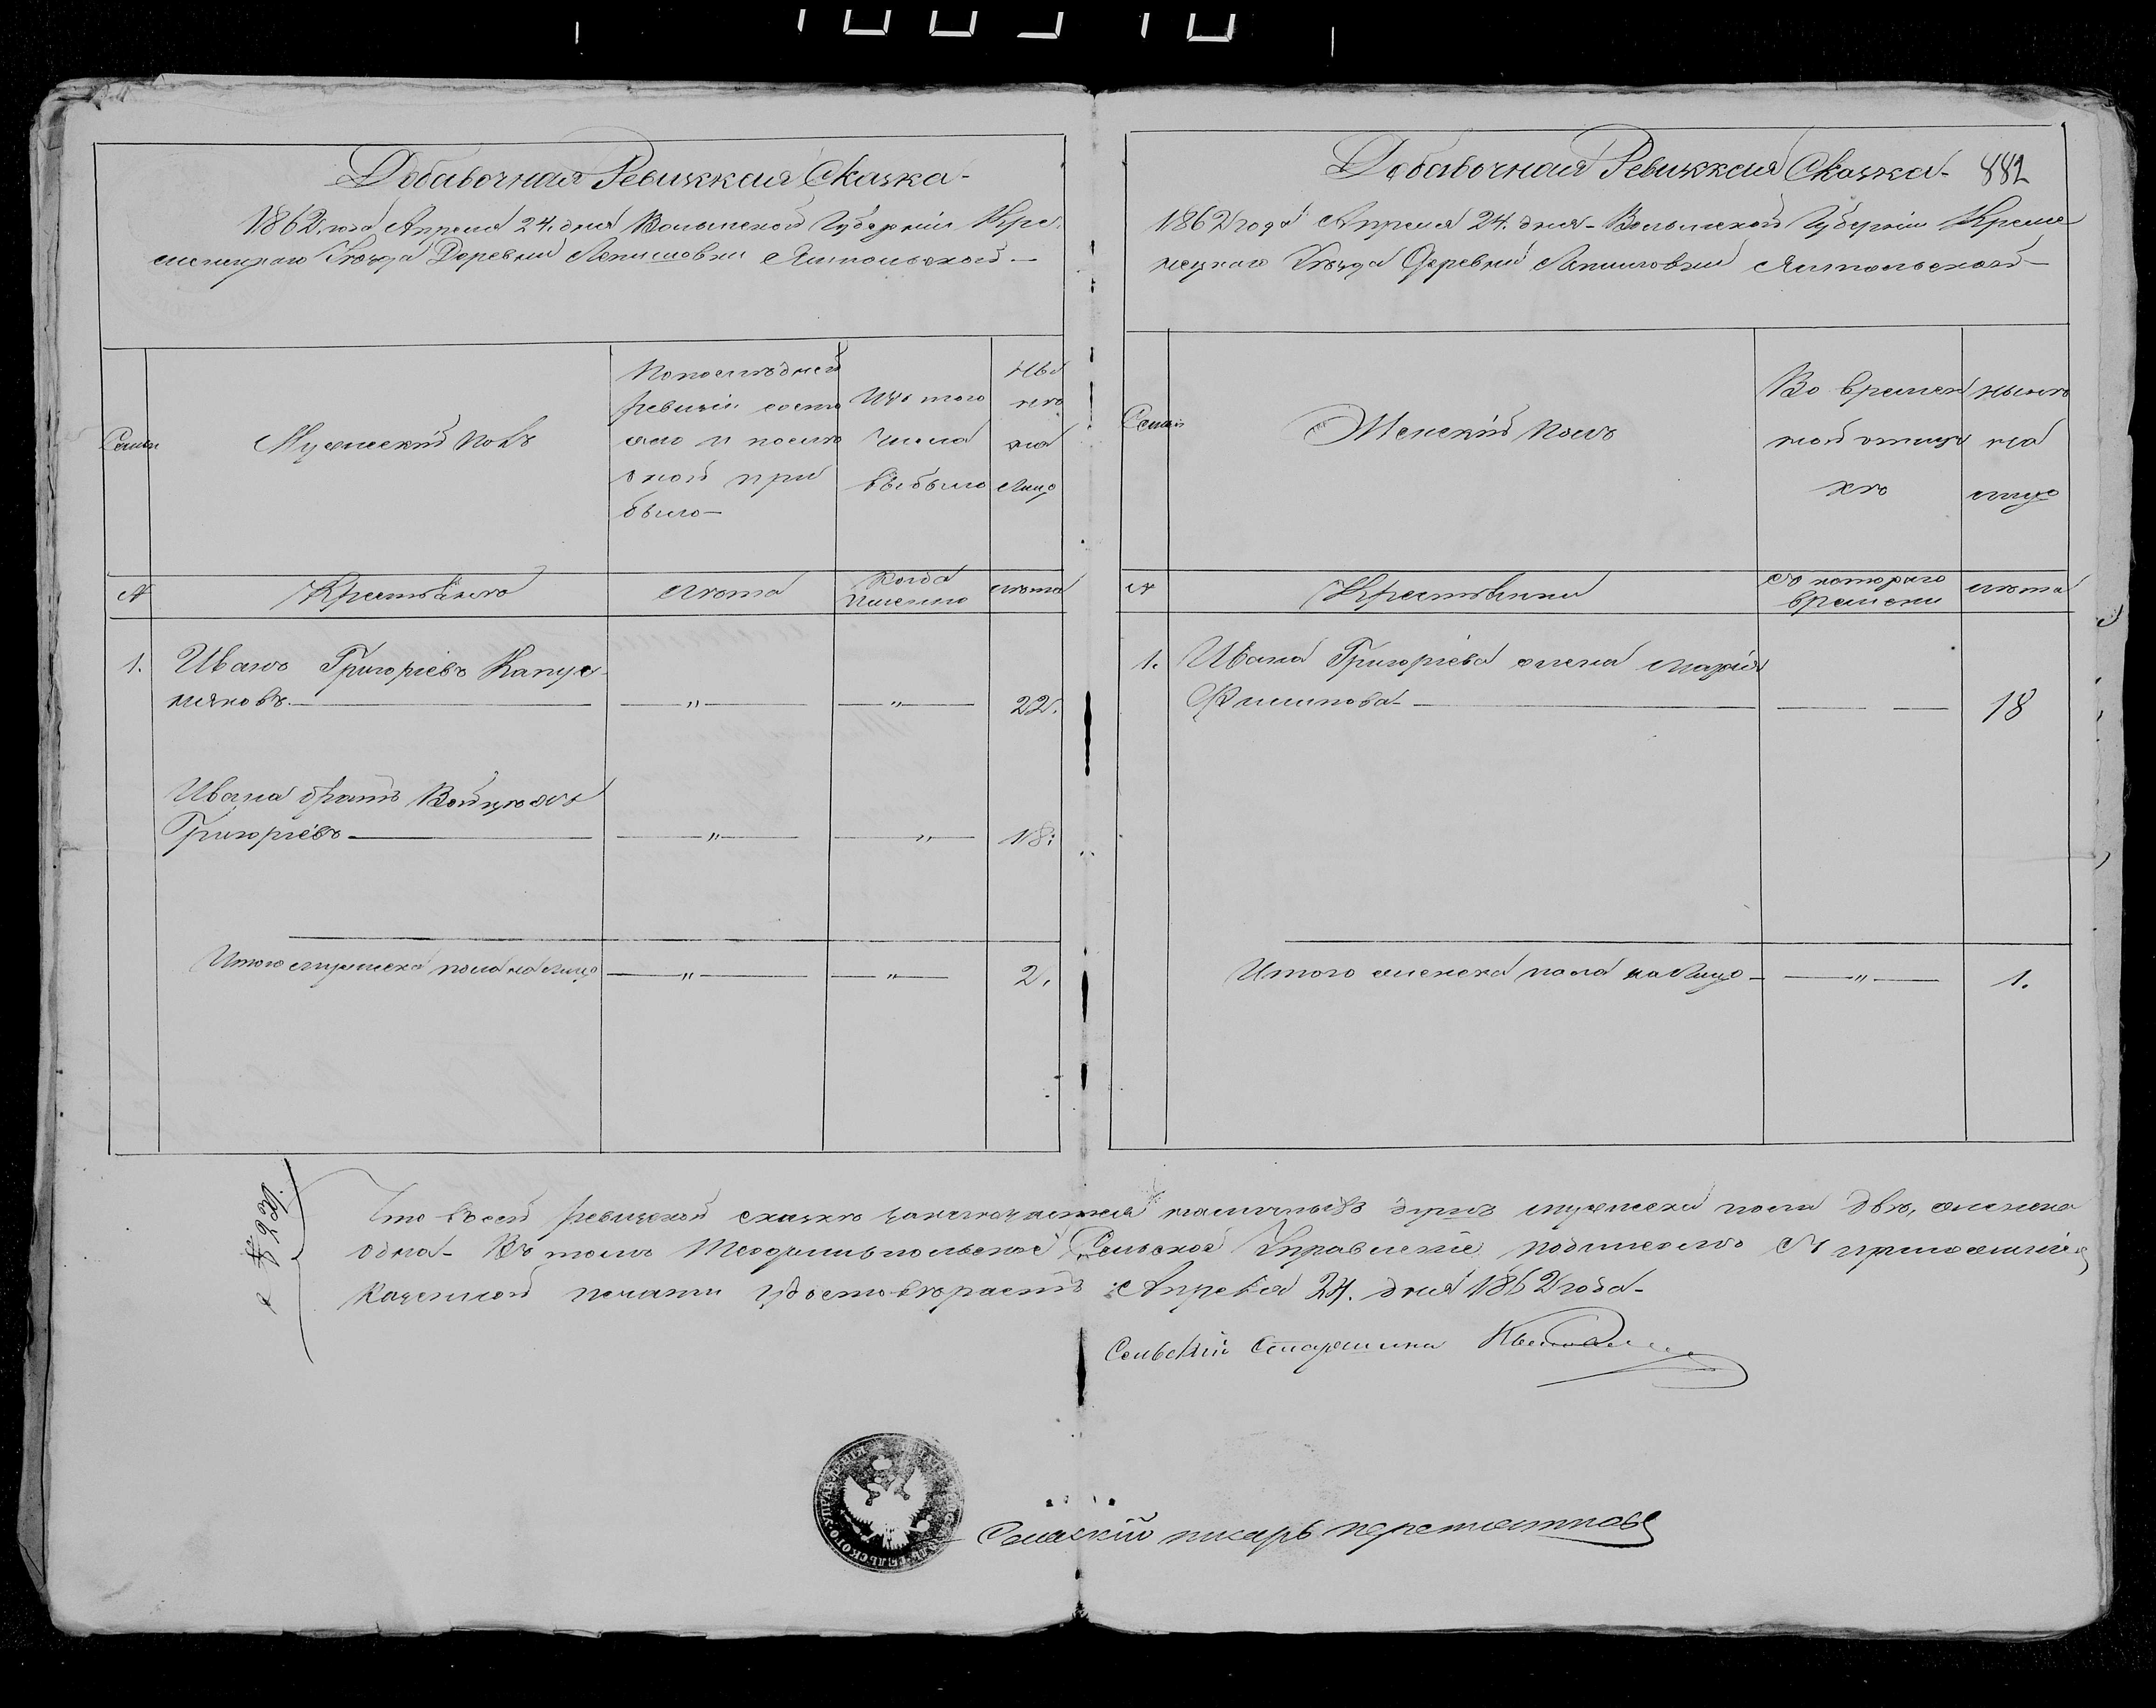 Добавочная Ревизкая Сказка-
1862. года Апреля 24. дня Волынской Губерніи Кре-
менецкаго Уѣзда Деревни Лепишовки Ямпольской-
Семьи
Мужескій полъ
Попослѣдней
ревизіи состо
яло и послѣ
оной при
было-
Изъ того
числа
выбыло
Ны
нѣ
на
лицо
№
Крестьянѣ
лѣта
Когда
имянно
лѣта
1. Иванъ Григоріевъ Капус-
няковъ. — „ — — „ — 22.
Ивана братъ Войцѣхъ
Григорьевъ — „ — — „ — 18:
Итого мужеска пола на лицо — „ — — „ — 2.
Добавочная Ревизкая Сказка- 882
1862 года Апреля 24. дня- Волынской Губерніи Креме
нецкаго Уѣзда Деревни Лепишовки Ямпольской-
Семьи
Женскій полъ
Во времен
ной отлуч
кѣ
нынѣ
на
лицо
№
Крестьянки
съ котораго
времени
лѣта
1. Ивана Григорьева жена Марія
Филипова- — — 18
Итого женска пола на лицо- — „ — 1.
Что въ сей ревизской сказкѣ заключается наличныхъ душъ мужеска пола двѣ, женска
одна- Въ томъ Сельское Управленіе подписомъ съ приложеніемъ
Казенной печати удостовѣряетъ Апреля 24. дня 1862 года-
Сельскій Старшина
Сельскій писарь